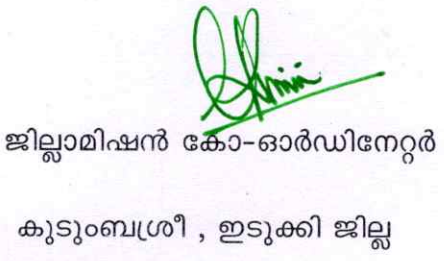 ജില്ലാമിഷൻ കോ-ഓർഡിനേറ്റർ
കുടുംബശ്രീ , ഇടുക്കി ജില്ല